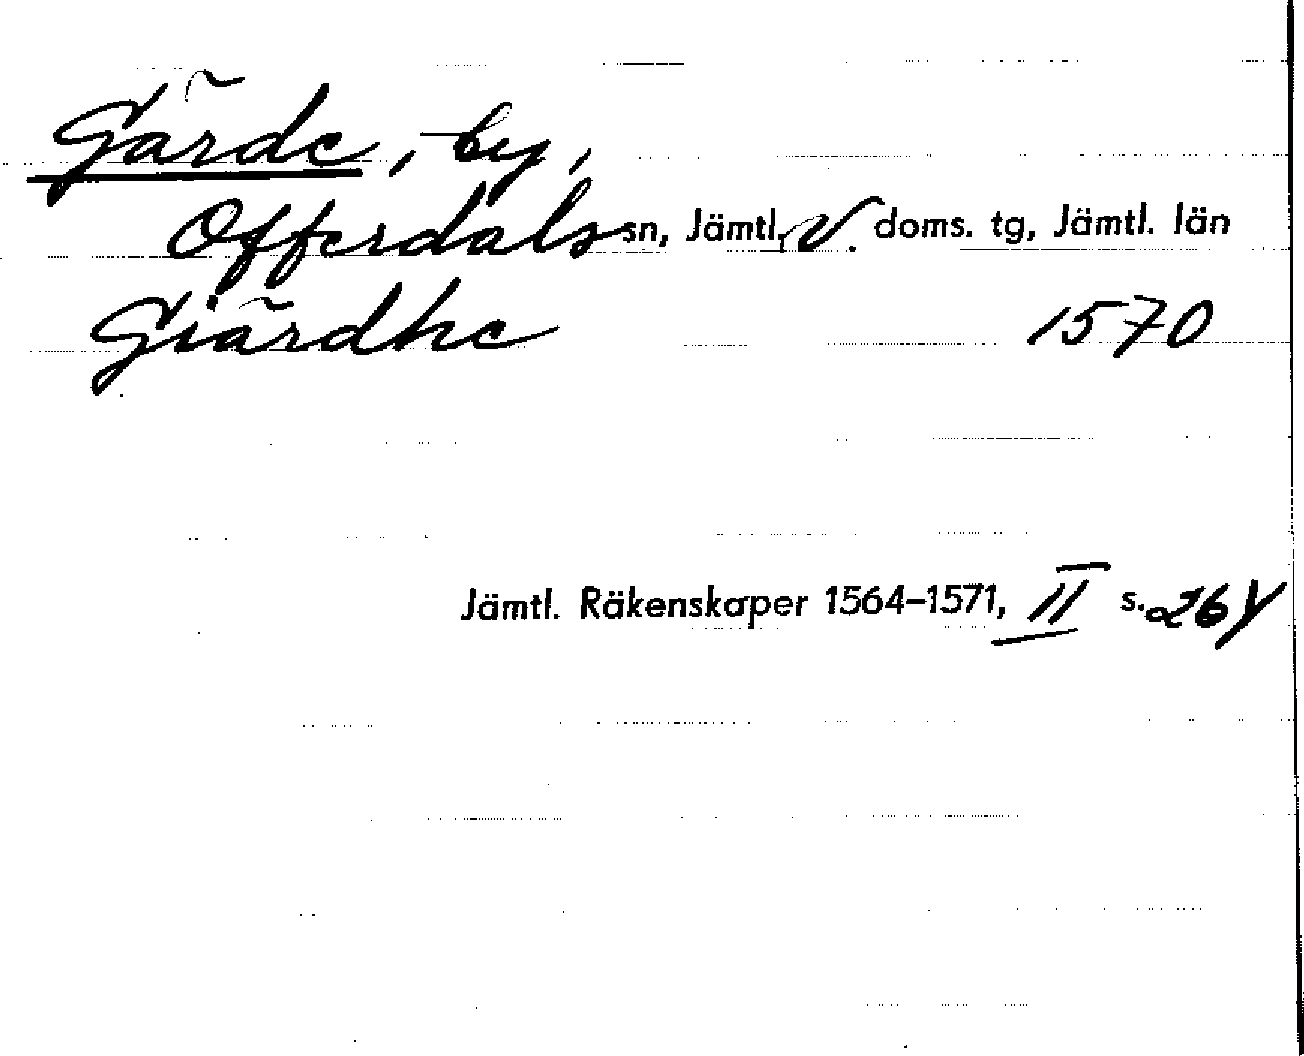 Gärde, by,
Offerdals sn, Jämtl. v. doms. tg, Jämtl. län
Giärdhe 1570
Jämtl. Räkenskaper 1564-1571, II s. 264